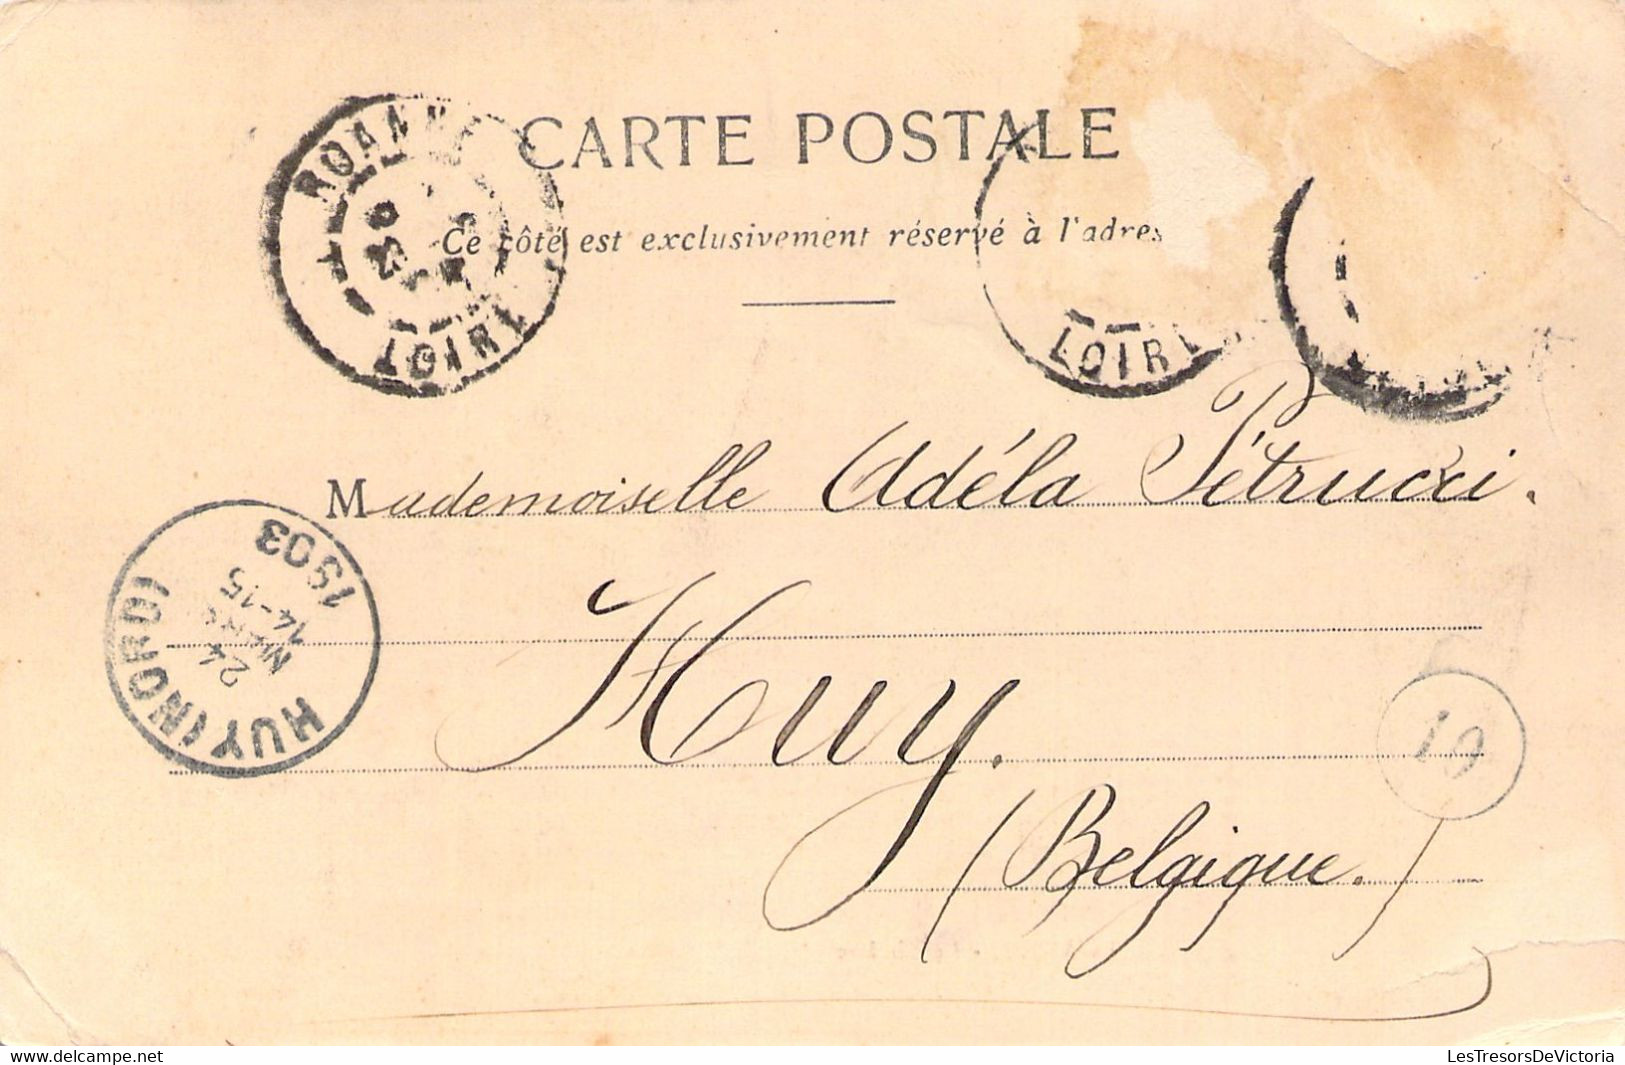 CARTE POSTALE
Ce côté est exclusivement réservé à l'adres
LOIRE
LOIRE
Mademoiselle Adéla Pétrucci.
HUY (NORD)
24
MARS
14-15
1903
Huy.
19
(Belgique.)
www.delcampe.net
LesTresorsDeVictoria